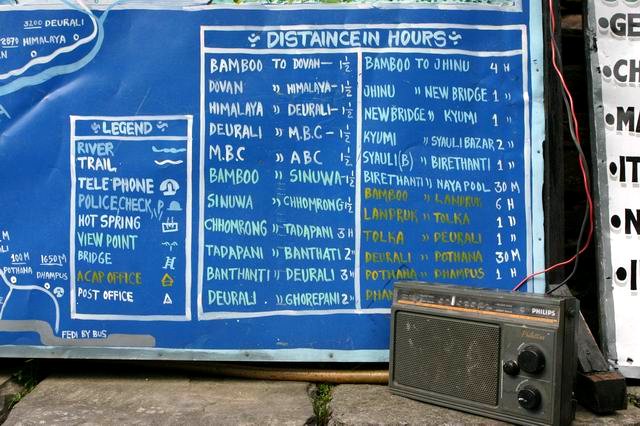 3200 DEURALI
2870 HIMALAYA
DISTAINCE IN HOURS
BAMBOO TO DOVAN — 1 1/2
DOVAN " HIMALAYA- 1 1/2
HIMALAYA " DEURALI- 1 1/2
DEURALI " M.B.C - 1 1/2
M.B.C " ABC 1 1/2
BAMBOO " SINUWA- 1 1/2
SINUWA " CHHOMRONG 1 1/2
CHHOMRONG " TADAPANI 3 H
TADAPANI " BANTHATI 2 "
BANTHANTI " DEURALI 3 "
DEURALI . " GHOREPANI 2 "
BAMBOO TO JHINU 4 H
JHINU " NEW BRIDGE 1 "
NEW BRIDGE " KYUMI 1 "
KYUMI " SYAULI BAZAR 2 "
SYAULI (B) " BIRETHANTI 1 "
BIRETHANTI " NAYA POOL 30 M
BAMBOO " LANDRUK 6 H
LANDRUK " TOLKA 1 "
TOLKA " DEURALI 1 "
DEURALI " POTHANA 30 M
POTHANA " DHAMPUS 1 H
LEGEND
RIVER
TRAIL
TELEPHONE
POLICE,CHECK,P
HOT SPRING
VIEW POINT
BRIDGE
ACAP OFFICE
POST OFFICE
1650M
POTHANA DHAMPUS
FEDI BY BUS
PHILIPS